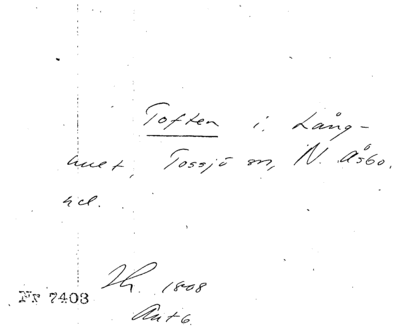 Toften i Lång-
huet, Tossjö sn, N. Åsbo.
hd.
Fr 7403
Lh. 1808
Ant 6.